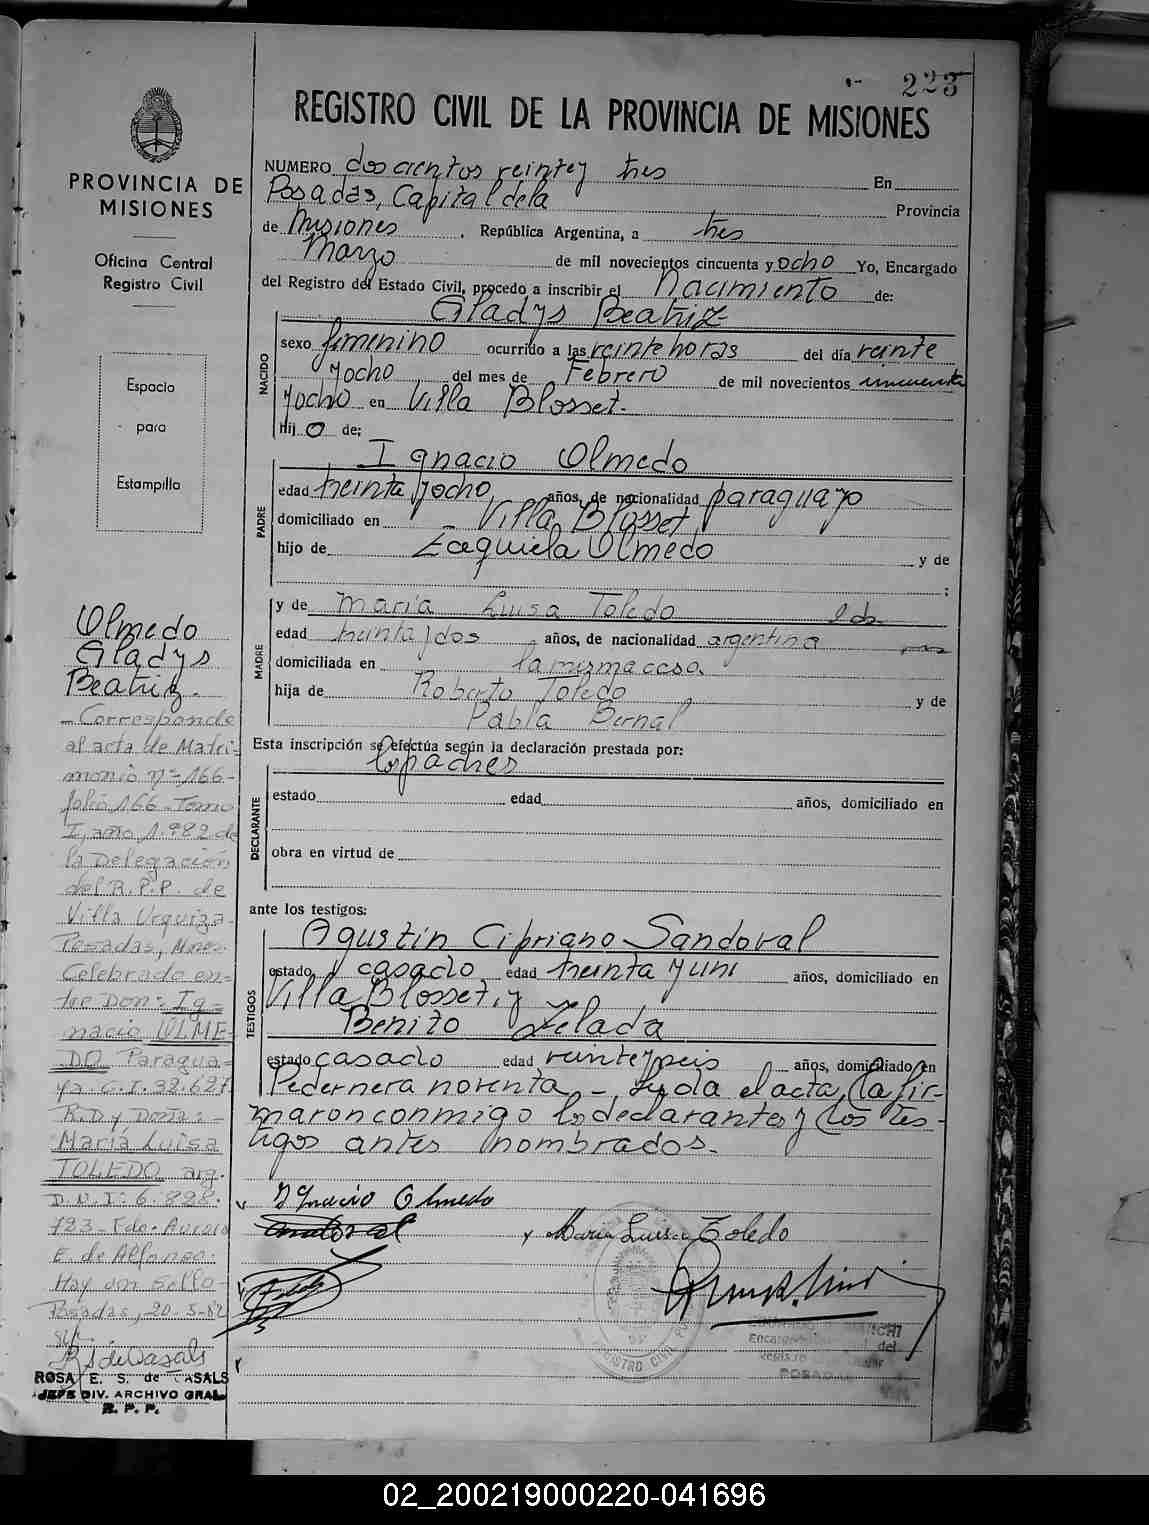 223
REGISTRO CIVIL DE LA PROVINCIA DE MISIONES
PROVINCIA DE
MISIONES
Oficina Central
Registro Civil
Espacio
para
Estampilla
NUMERO doscientos veintey tres En
Posadas, Capital dela Provincia
de Misiones, República Argentina, a tres
Marzo de mil novecientos cincuenta y ocho Yo, Encargado
del Registro del Estado Civil, procedo a inscribir el Nacimiento de:
Gladys Beatriz
NACIDO
sexo femenino ocurrido a las veinte horas del día veinte
yocho del mes de Febrero de mil novecientos cincuenta
yocho en Villa Blosset.
hij a de:
Ignacio Olmedo
PADRE
edad treinta yocho, años, de nacionalidad paraguayo
domiciliado en Villa Blosset
hijo de Ezequiela Olmedo y de
;
MADRE
y de María Luisa Toledo
edad treinta y dos años, de nacionalidad argentina
domiciliada en la misma casa
hija de Roberto Toledo y de
Pabla Bernal
Esta inscripción se efectúa según la declaración prestada por:
los padres
DECLARANTE
estado edad años, domiciliado en
obra en virtud de
ante los testigos:
TESTIGOS
Agustín Cipriano Sandoval
estado casado edad treinta y un años, domiciliado en
Villa Blosset, y
Benito Zelada
estado casado edad veinteyseis años, domiciliado en
Pedernera noventa - Leida el acta, la fir-
maron conmigo los declarantes y los tes-
tigos antes nombrados.
Ignacio Olmedo
Sandoval
Maria Luisa Toledo
Olmedo
Gladys
Beatriz.
- Corresponde
al acta de Matri-
monio nº 166-
folio 166-Tomo
I, año 1.982 de
la Delegación
del R.P.P. de
Villa Urquiza
Posadas, Mnes.
Celebrado en-
tre Don: Ig-
nacio OLME-
DO Paragua-
yo. C.I. 32.627
R.D y Doña:-
María Luisa
TOLEDO arg.
D.N.I: 6.828.
723-Fdo. Aurora
E. de Alfonso:
Hay un sello-
Posadas, 20-5-82
ROSA E. S. de CASALS
JEFE DIV. ARCHIVO GRAL.
R. P. P.
REGISTRO CIVIL
02_200219000220-041696